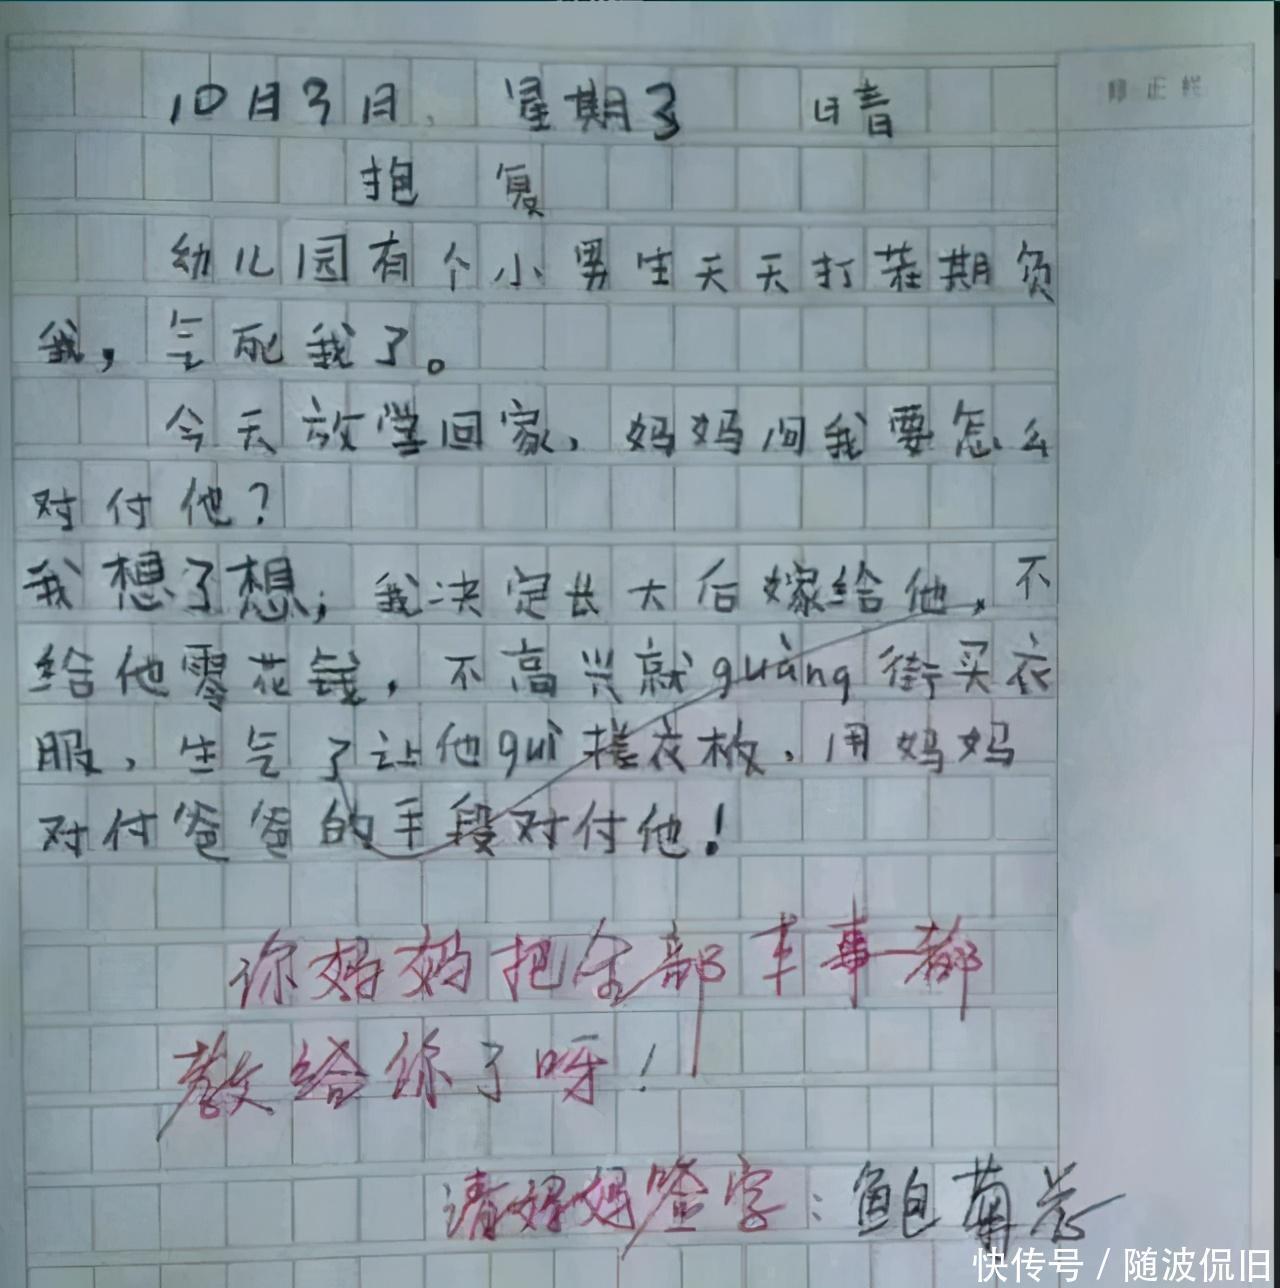 10月3日, 星期3 晴
修正栏
抱复
幼儿园有个小男生天天打茬期负
我，气死我了。
今天放学回家，妈妈问我要怎么
对付他？
我想了想，我决定长大后嫁给他，不
给他零花钱，不高兴就guàng街买衣
服，生气了让他guì搓衣板，用妈妈
对付爸爸的手段对付他！
你妈妈把全部本事都
教给你了呀！
请妈妈签字：鲍菊芯
快传号 / 随波侃旧